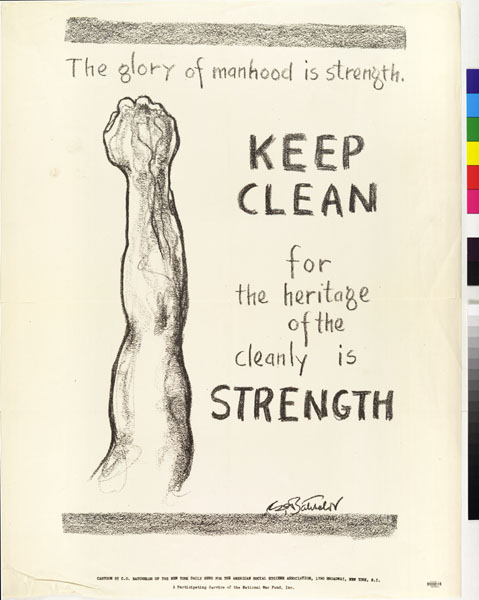 The glory of manhood is strength.
KEEP
CLEAN
for
the heritage
of the
cleanly is
STRENGTH
C.D. Batchelor
CARTOON BY C.D. BATCHELOR OF THE NEW YORK DAILY NEWS FOR THE AMERICAN SOCIAL HYGIENE ASSOCIATION, 1790 BROADWAY, NEW YORK, N.Y.
A Participating Service of the National War Fund, Inc.